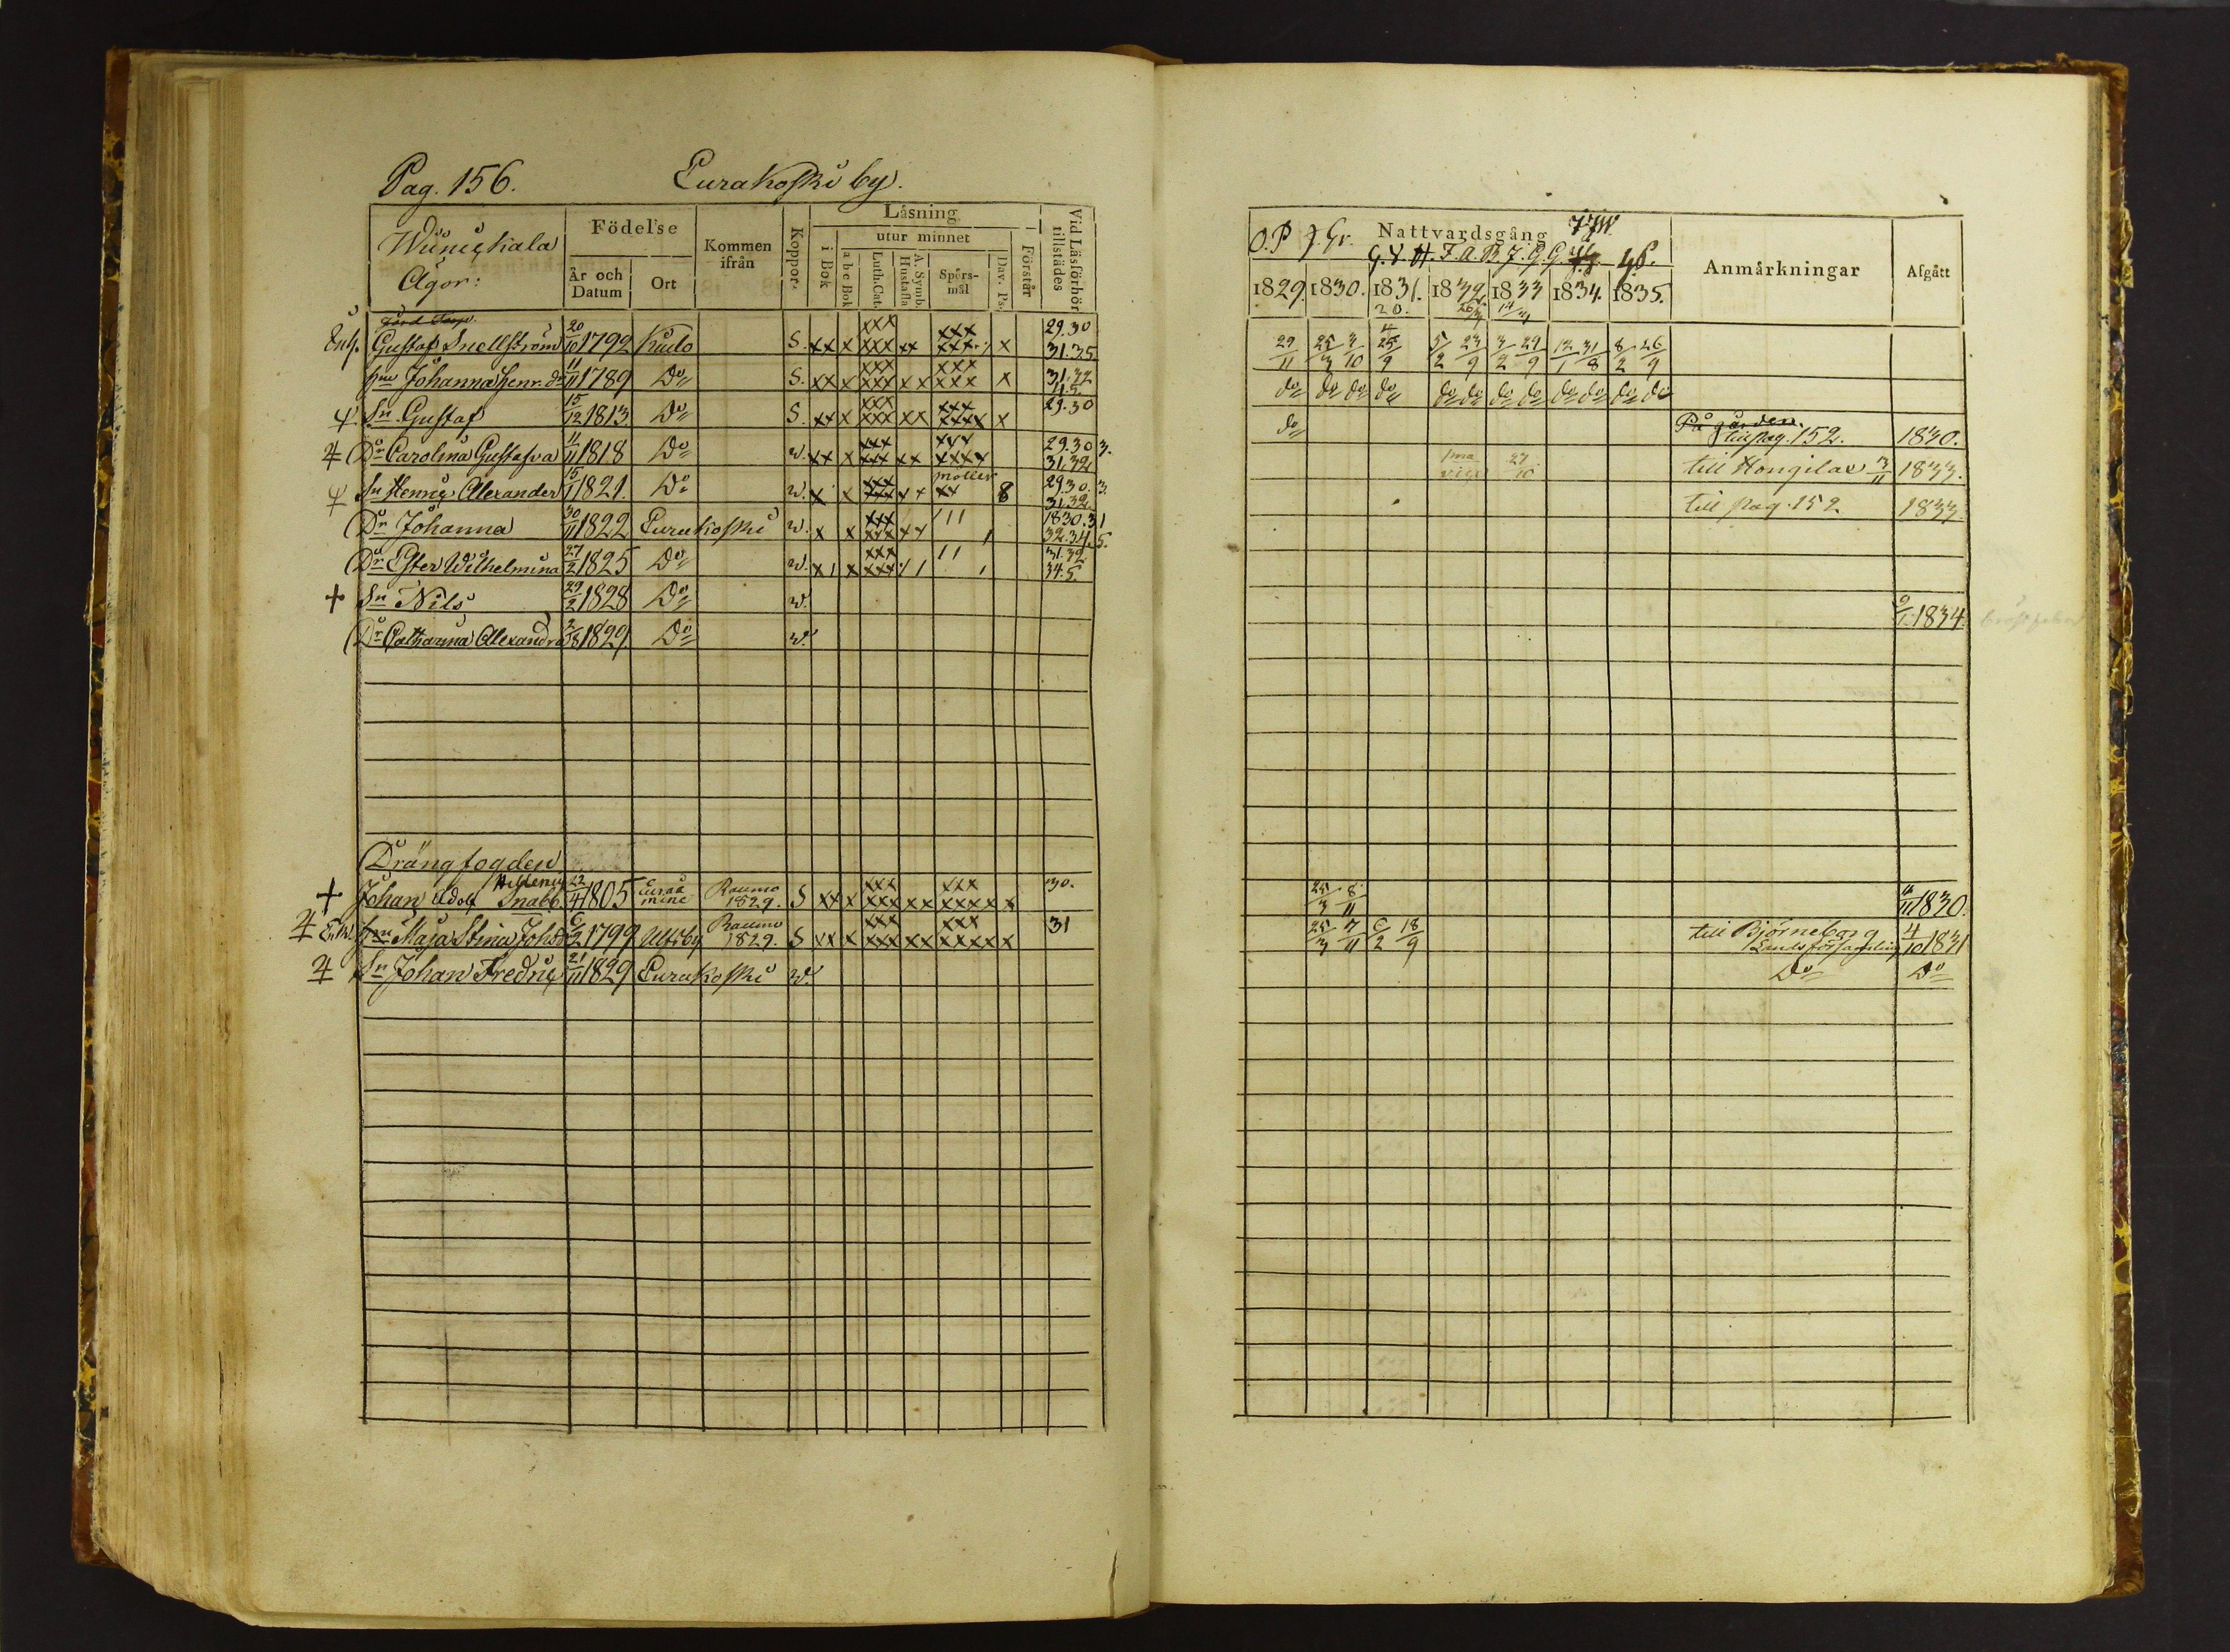 Pag. 156. Eurakoski by.
Ägor:
Födelse
År och Datum
Ort
Kommen ifrån
Koppor.
Läsning
i Bok
utur minnet
a b c Bok
Luth. Cat.
A. Symb. Hustafla
Spörs-mål
Dav. Ps.
Förstår
Vid Läsförhör tillstädes
Gustaf Snellström 20/10 1792 S. x x x xxx xxx x x xxx x 29.30 31.35
Johanna Henr.dr 11/11 1789 Do S. x x x xxx xxx x x xxx xxx x 31.32
Sn Gustaf 15/12 1813 Do S. x x x xxx xxx x x xxx xxxx x 29.30
Dr Carolina Gustafva 11/11 1818 Do w. x x x xxx xxx x x xxx xxxx 29.30 31.32 3.
Sn Henric Alexander 15/1 1821. Do w. x x xxx xxx x x xx 8 29.30. 31.32. 3.
Dr Johanna 30/11 1822 Eurakoski w. x x xxx xxx x x 1830.31 32.34.5.
Dr Ester Wilhelmina 27/2 1825 Do w. x x xxx xxx 31.32 34.5.
+ Sn Nils 29/2 1828 Do w.
Dr Catharina Alexandra 2/8 1829. Do w.
Drängfogden
+ Johan Adolf Snabb 22/4 1805 Raumo 1829. S x x x xxx xxx x x xxx xxxx x 30.
Maja Stina Johsdr 6/2 1799 Ulfsby Raumo 1829. S x x x xxx xxx x x xxx xxxx x 31
Sn Johan Fredric 21/11 1829 Eurakoski w.
Nattvardsgång
Anmärkningar
Afgått
1829. 1830. 1831. 1832 1833 1834. 1835.
29/11 25/3 3/10 25/9 5/2 23/9 3/2 29/9 12/1 31/8 8/2 26/9
do do do do do do do do do do do do
do På gården. till pag. 152. 1830.
27/10 till Hongilax 13/11 1833.
till pag. 152 1833.
1834.
25/3 8/11 1830.
25/3 7/11 6/2 18/9 till Björneborg Landsförsamling 4/10 1831
Do Do